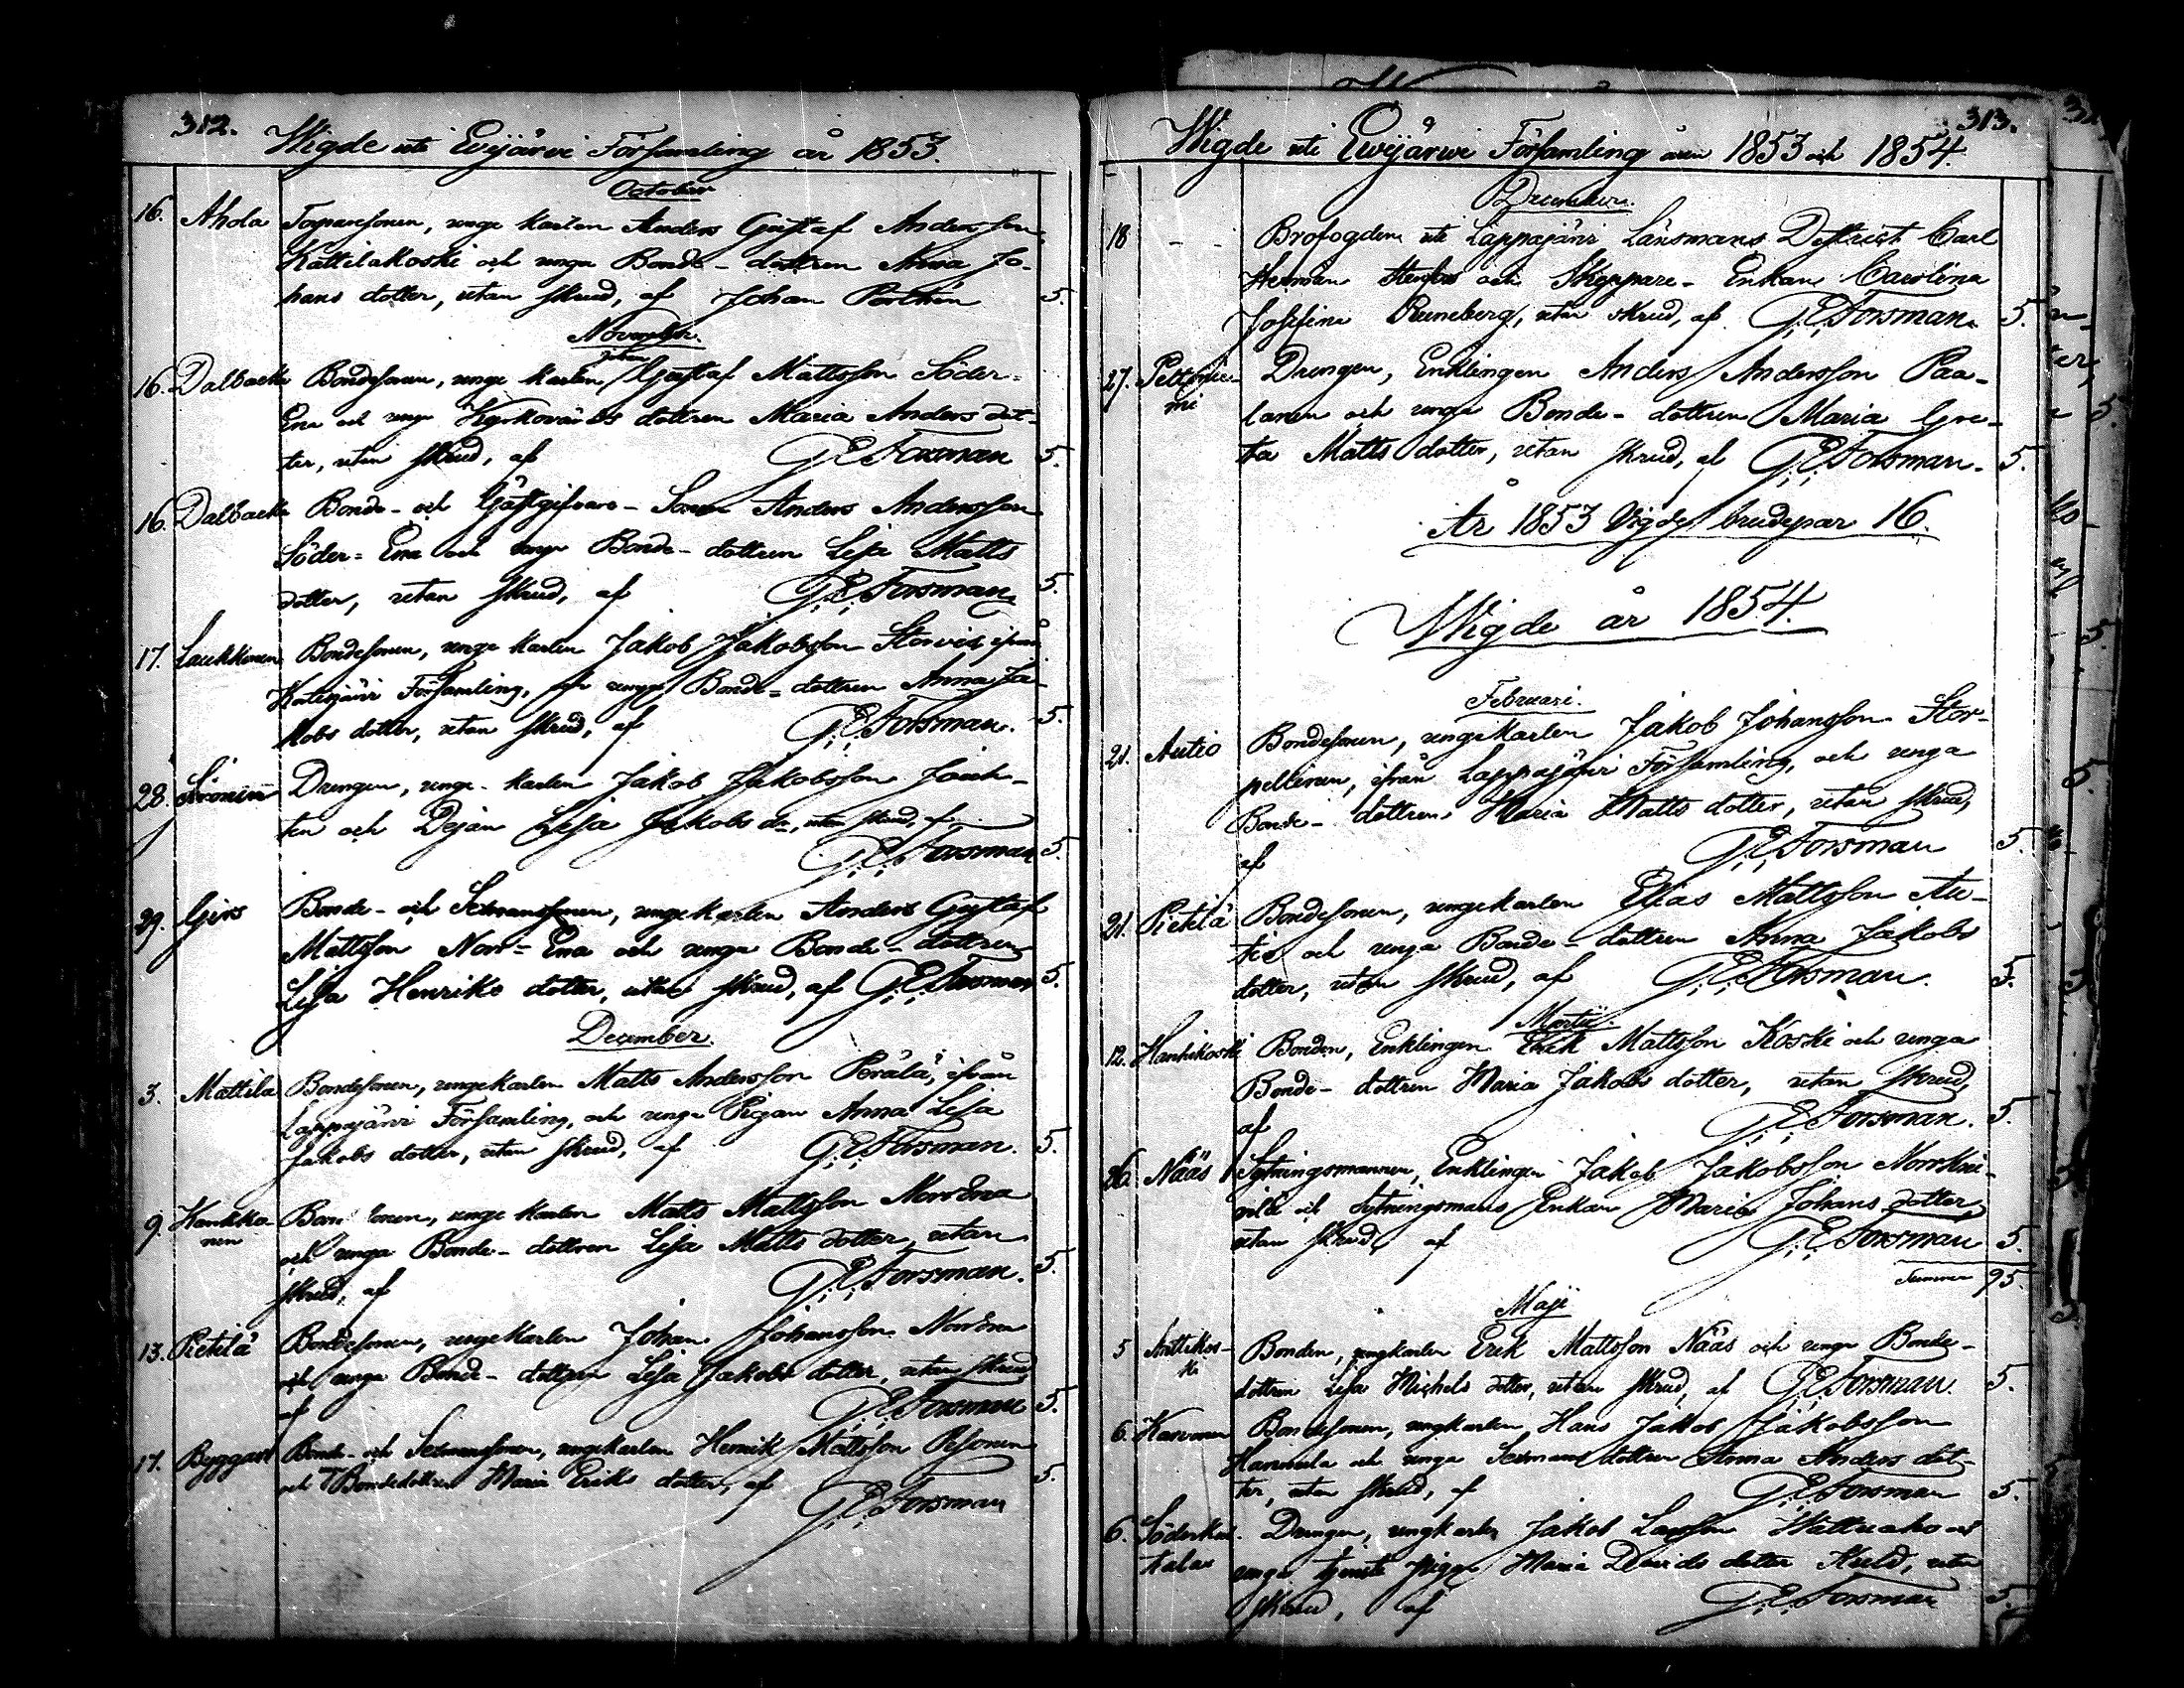 312.
Wigde uti Evijärvi Församling år 1853.
October
16. Ahola Torparesonen, unge karlen Anders Gustaf Andersson
Kattilakoski och unga Bonde-dottren Anna Jo-
hans dotter, utan skrud, af Johan Porthin 5.
November.
16. Dalbacka Bondesonen, unge karlen Johan Gustaf Mattsson Söder-
Ena och unga Kyrkovärds dottren Maria Anders dot-
ter, utan skrud, af G.E. Forsman 5.
16. Dalbacka Bonde- och Gästgifvare-Sonen Anders Andersson
Söder-Ena och unga Bonde-dottren Lisa Matts
dotter, utan skrud, af G.E. Forsman 5.
17. Laukkonen Bondesonen, unge karlen Jakob Jakobsson Storvist ifrån
Kortesjärvi Församling, och unga Bonde-dottren Anna Ja-
kobs dotter, utan skrud, af G.E. Forsman. 5.
28. Drengen, unge karlen Jakob Jakobsson
ten och Pejan Lisa Jakobs dr, utan skrud, af
G.E. Forsman 5.
29. Girs Bonde- och Sexmanssonen, unge karlen Anders Gustaf
Mattsson Norr-Ena och unga Bonde-dottren
Lisa Henriks dotter, utan skrud, af G.E. Forsman 5.
December.
3. Mattila Bondesonen, unge karlen Matts Andersson Perälä, ifrån
Lappajärvi Församling, och unga Pigan Anna Lisa
Jakobs dotter, utan skrud, af G.E. Forsman. 5.
9. Kaukko- Bondesonen, unge karlen Matts Mattsson Norrena
nen och unga Bonde-dottren Lisa Matts dotter, utan
skrud, af G.E. Forsman. 5.
13. Pietilä Bondesonen, unge karlen Johan Johansson Norrena
och unga Bonde-dottren Lisa Jakobs dotter, utan skrud,
af G.E. Forsman 5.
17. Byggari Bonde- och Sexmanssonen, unge karlen Henrik Mattsson Pesonen
och Bondedottren Maria Eriks dotter, af 5.
G.E. Forsman
313.
Wigde uti Ewijärwi Församling åren 1853 och 1854.
December.
18 - - Brofogden uti Lappajärvi Länsmans Distrikt Carl
Herman och Skeppare-Enkan Carolina
Josefina Runeberg, utan skrud, af G.E. Forsman 5.
27. Drengen, Enklingen Anders Andersson Paa-
mi lanen och unga Bonde-dottren Maria Gre-
ta Matts dotter, utan skrud, af G.E. Forsman. 5.
År 1853 Vigde brudepar 16.
Wigde år 1854.
Februari.
21. Autio Bondesonen, unge karlen Jakob Johansson Stor-
peltonen, ifrån Lappajärvi Församling, och unga
Bonde-dottren Maria Matts dotter, utan skrud,
af G.E. Forsman 5.
21. Pietilä Bondesonen, unge karlen Elias Mattsson Au-
tio och unga Bonde-dottren Anna Jakobs
dotter, utan skrud, af G.E. Forsman. 5.
Martii.
12. Hanhikoski Bonden, Enklingen Erik Mattsson Koski och unga
Bonde-dottren Maria Jakobs dotter, utan skrud,
af G.E. Forsman. 5.
26. Nääs Sytningsmannen, Enklingen Jakob Jakobsson Norrkni-
vilä och Sytningsmans Enkan Maria Johans dotter,
utan skrud, af G.E. Forsman 5.
Summa 95.
Maji
5 Anttikos- Bonden, ungkarlen Erik Mattsson Nääs och unga Bonde-
ki dottren Lisa Michels dotter, utan skrud, af G.E. Forsman. 5.
6. Karvonen Bondesonen, ungkarlen Hans Jakob Jakobsson
Hannula och unga Sexmans dottren Anna Anders dot-
ter, utan skrud, af G.E. Forsman 5.
6. Drengen, ungkarlen Jakob Larsson
unga tjenste pigan Maria Davids dotter, utan
skrud, af G.E. Forsman 5.